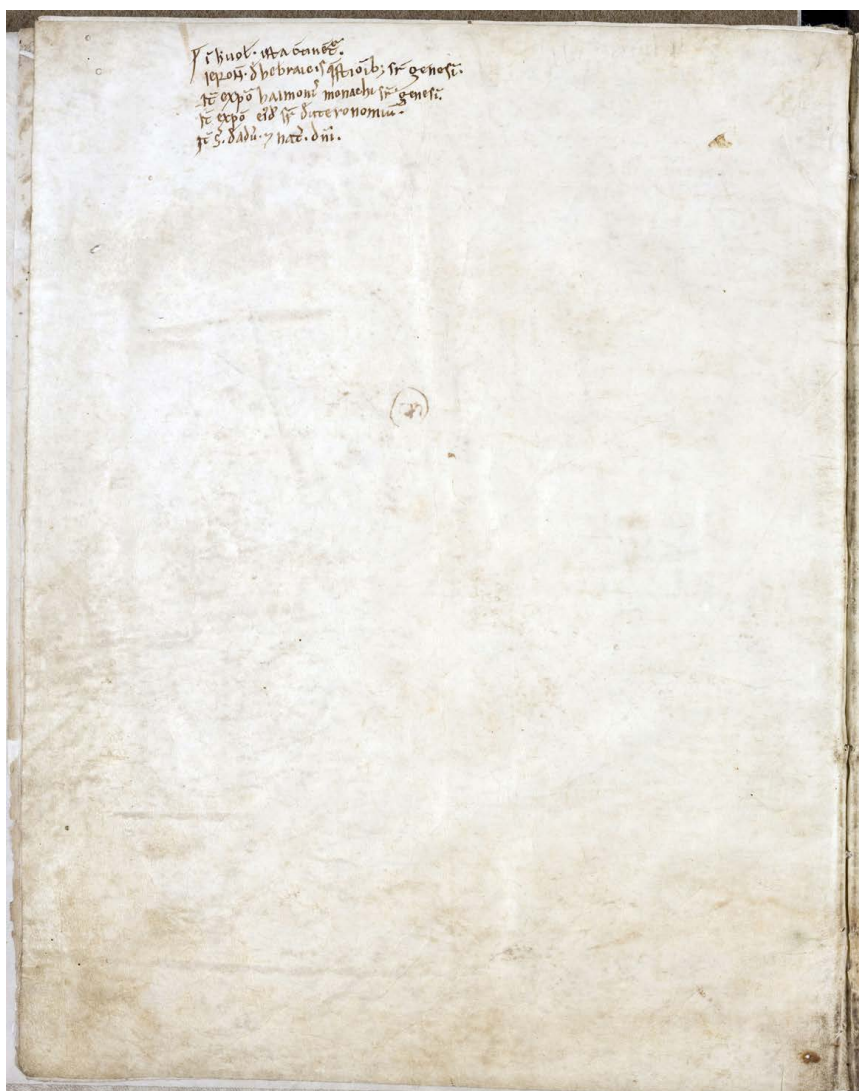 ī h̄ uol̄. ista ɔtinēt̄.
ieroñ. d̄ hebraicis q̄stiōib; sr̄ genesī.
It̄ expō haimonis monachi sr̄ genesī.
It̄ expō eiđ sr̄ đuteronomiū.
It̄ s̄. d̄ adū. ⁊ nat̄. dn̄i.